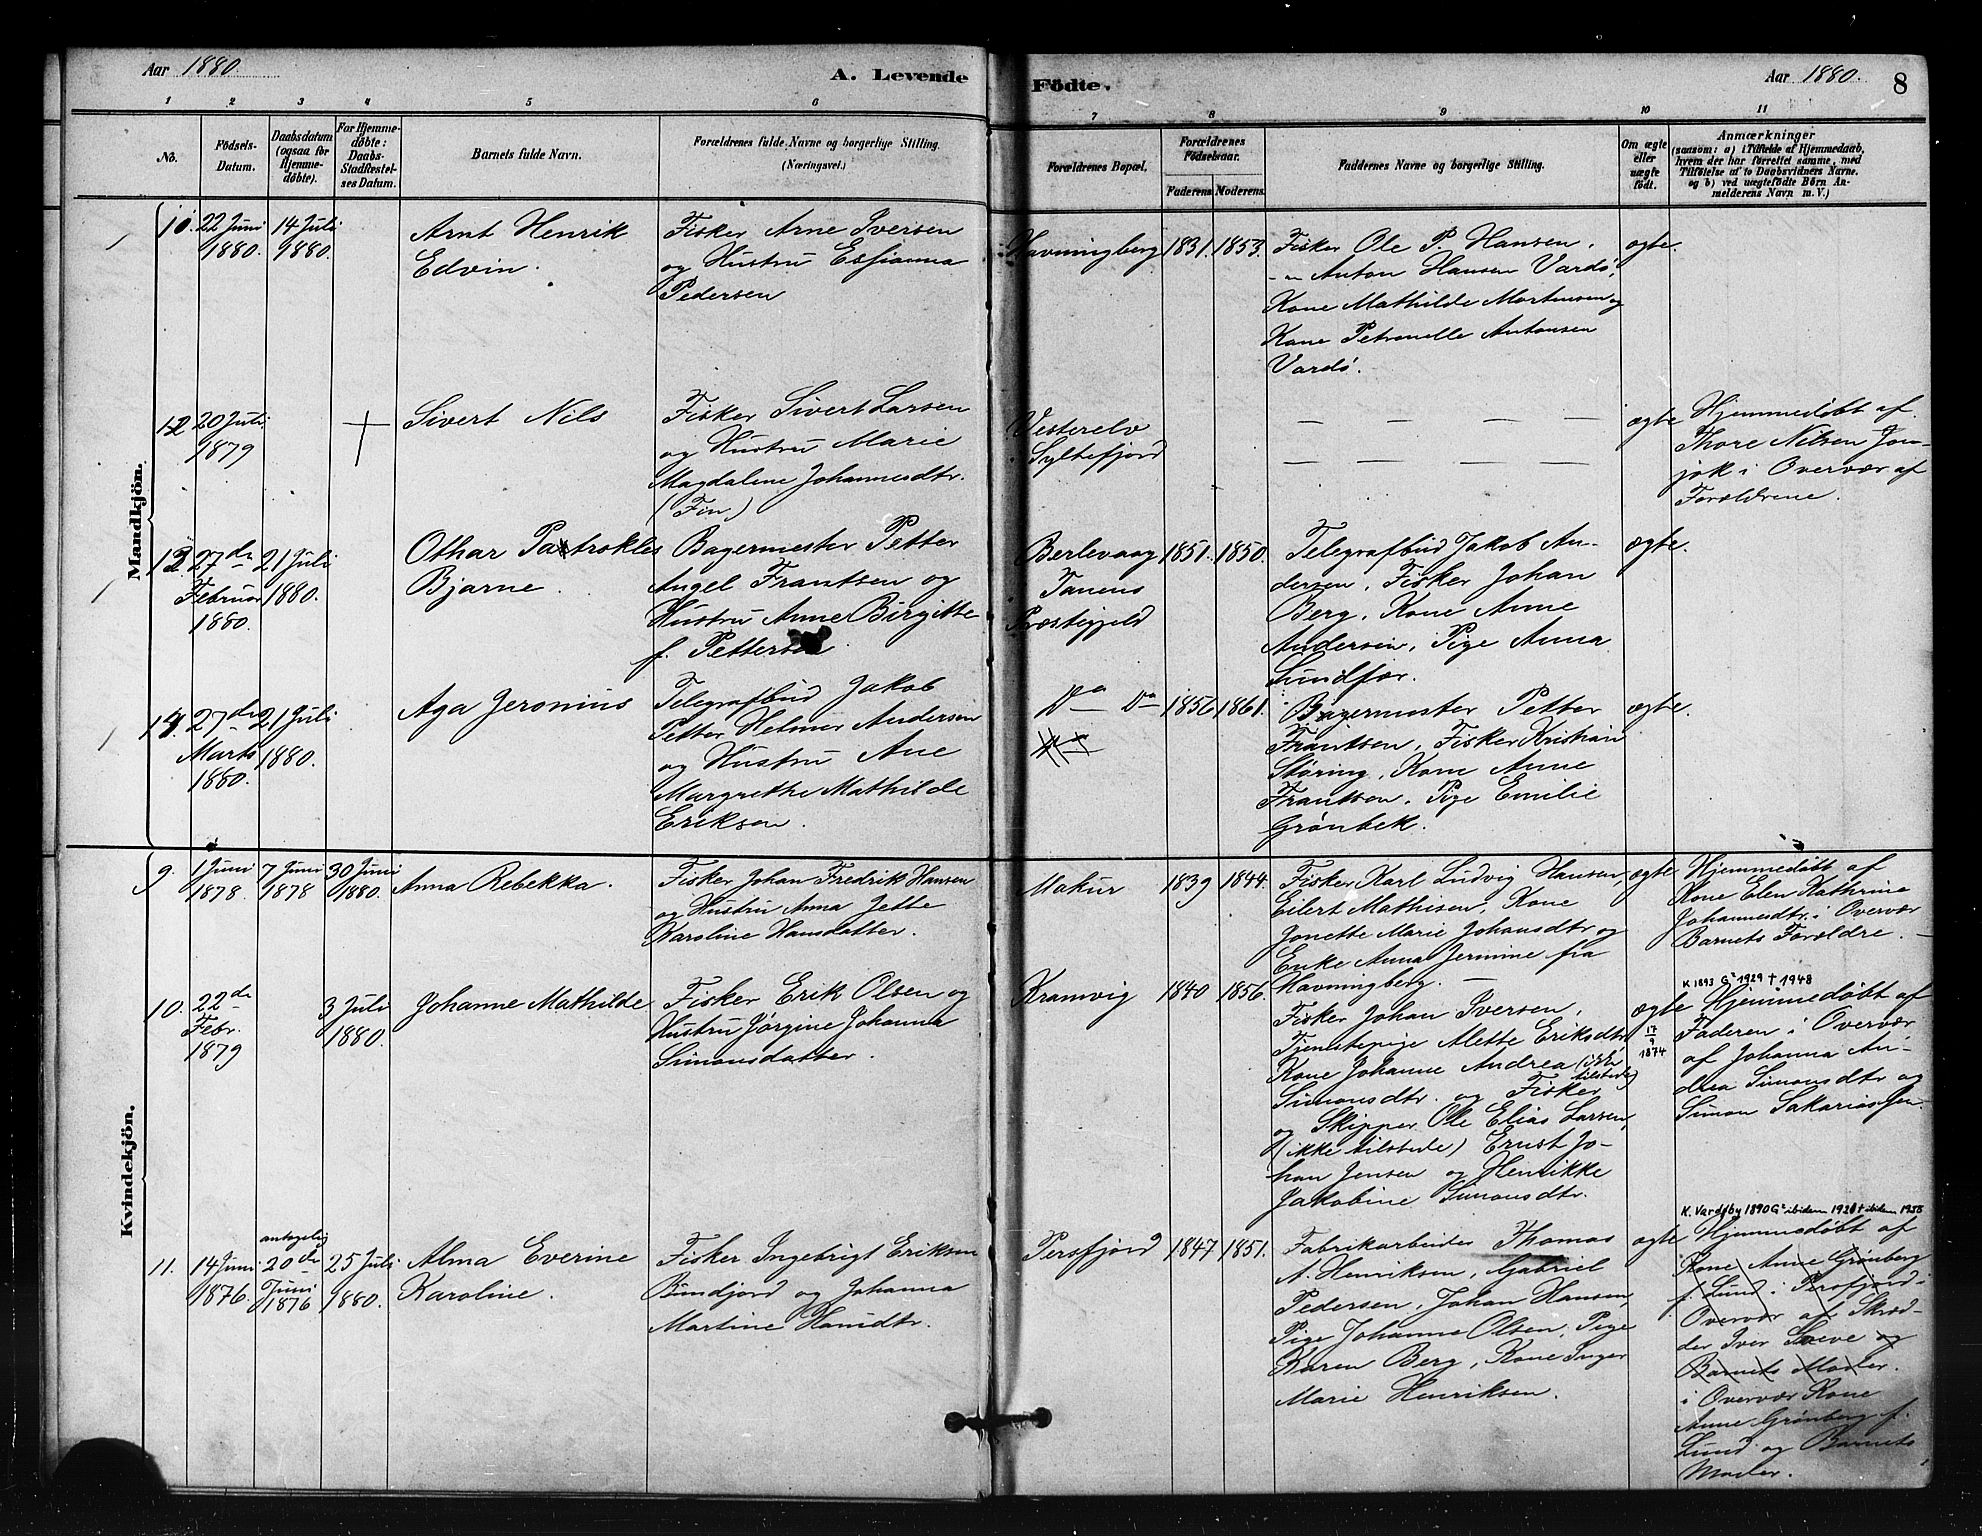 Aar 1880.
A. Levende
Födte.
Aar 1880.
8
1 2 3 4 5 6 7 8 9 10 11
No.
Födsels-
Datum.
Daabsdatum
(ogsaa for
Hjemme-
døbte).
For Hjemme-
døbte:
Daabs-
Stadfæstel-
ses Datum.
Barnets fulde Navn.
Forældrenes fulde Navne og borgerlige Stilling.
(Næringsvei.)
Forældrenes Bopæl.
Forældrenes
Födselsaar.
Faderens. Moderens.
Faddernes Navne og borgerlige Stilling.
Om ægte
eller
uægte
født.
Anmærkninger
(saasom: a) i Tilfælde af Hjemmedaab,
hvem der har forrettet samme, med
Tilføielse af to Daabsvidners Navne.
og b) ved uægtefödte Börn An-
melderens Navn m. V.)
Mandkjön.
22 Juni
1880.
14 Juli
1880.
Arnt Henrik
Edvin.
Fisker Arne Iversen
og Hustru
Pedersen
Havningberg
1831. 1853.
Fisker Ole P. Hansen,
-"- Anton Hansen Vardø,
Kone Mathilde Mortensen og
Kone Petronelle Antonsen
Vardø.
ægte.
12
20 Juli
1879
Sivert Nils
Fisker Sivert Larsen
og Hustru Marie
Magdalene Johannesdtr.
(Fin.)
Vesterelv
Syltefjord
— — — —
— — — —
ægte
Hjemmedøbt af
Thore Nilsen
i Overvær af
Forældrene.
13
27de
Februar
1880.
21 Juli
1880.
Othar Patrokles
Bjarne.
Bagermester Petter
Angel Frantsen og
Hustru Anne Birgitte
f. Pettersen.
Berlevaag
Tanens
Præstegjeld
1851. 1850.
Telegrafbud Jakob An-
dersen, Fisker Johan
Berg, Kone Anne
Andersen, Pige Anna
Sundfær.
ægte.
14
27de
Marts
1880.
21 Juli
1880.
Aga Jeronius
Telegrafbud Jakob
Petter Helmer Andersen
og Hustru Ane
Margrethe Mathilde
Eriksen.
Do Do
1856 1861.
Bagermester Petter
Frantsen, Fisker Kristian
Støring, Kone Anne
Frantsen, Pige Emilie
Grønbek.
ægte.
Kvindekjön.
9.
1 Juni
1878.
7 Juni
1878
30 Juni
1880.
Anna Rebekka.
Fisker Johan Fredrik Hansen
og Hustru Anna Jette
Karoline Hansdatter.
Makur
1839 1844.
Fisker Karl Ludvig Hansen,
Eilert Mathisen, Kone
Jonette Marie Johansdtr og
Enke Anna Jermine fra
Havningberg. —
ægte
Hjemmedøbt af
Kone Elen Kathrine
Johannesdtr. i Overvær
Barnets Forældre. —
10.
22de
Febr.
1879
3 Juli
1880.
Johanne Mathilde
Fisker Erik Olsen og
Hustru Jørgine Johanna
Simonsdatter.
Kramvig
1840 1856.
Fisker Johan Iversen,
Tjenstepige Alette Eriksdtr,
Kone Johanne Andrea (ikke
tilstede)
Simonsdtr. og Fisker
og Skipper Ole Elias Larsen,
(ikke tilstede) Ernst Jo-
han Jensen og Henrikke
Jakobine Simonsdtr.
ægte
17/9
1874
K 1893 G 1929 † 1948
Hjemmedøbt af
Faderen i Overvær
af Johanna An-
drea Simonsdtr og
Simon Sakariassen.
11.
14 Juni
1876.
antagelig
20de
Juni
1876
25 Juli
1880.
Alma Everine
Karoline.
Fisker Ingebrigt Eriksen
Bundjord og Johanna
Martine Hansdtr.
Persfjord
1847 1851.
Fabrikarbeider Thomas
A. Henriksen, Gabriel
Pedersen, Johan Hansen,
Pige Johanne Olsen, Pige
Karen Berg, Kone Inger
Marie Henriksen.
ægte
K. Vardøby 1890 G ibidem † ibidem
Hjemmedøbt af
Kone Anne Grønberg
f. Lund i Persfjord i
Overvær af Skræd-
der Iver Sæve og
Barnets Moder.
i Overvær Kone
Anne Grønberg f.
Lund og Barnets
Moder.